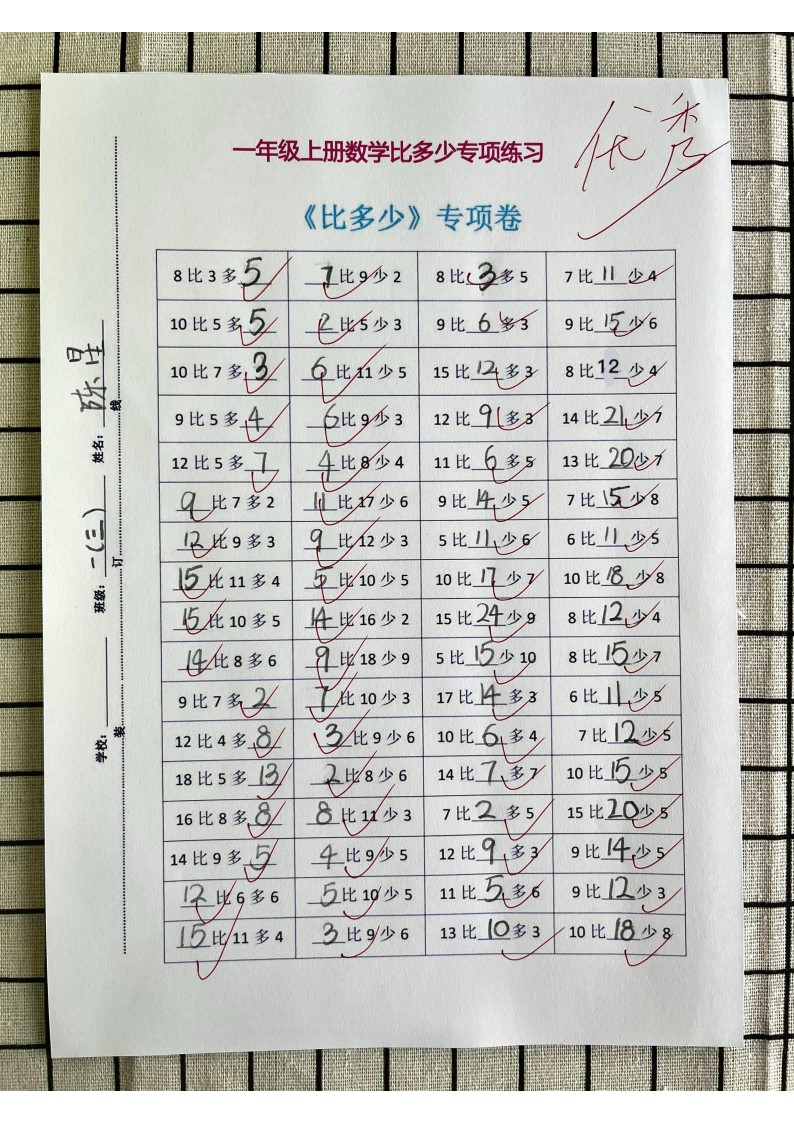 优秀
一年级上册数学比多少专项练习
《比多少》专项卷
8 比 3 多 5 7 比 9 少 2 8 比 3 多 5 7 比 11 少 4
10 比 5 多 5 2 比 5 少 3 9 比 6 多 3 9 比 15 少 6
10 比 7 多 3 6 比 11 少 5 15 比 12 多 3 8 比 12 少 4
9 比 5 多 4 6 比 9 少 3 12 比 9 多 3 14 比 21 少 7
12 比 5 多 7 4 比 8 少 4 11 比 6 多 5 13 比 20 少 7
9 比 7 多 2 11 比 17 少 6 9 比 14 少 5 7 比 15 少 8
12 比 9 多 3 9 比 12 少 3 5 比 11 少 6 6 比 11 少 5
15 比 11 多 4 5 比 10 少 5 10 比 17 少 7 10 比 18 少 8
15 比 10 多 5 14 比 16 少 2 15 比 24 少 9 8 比 12 少 4
14 比 8 多 6 9 比 18 少 9 5 比 15 少 10 8 比 15 少 7
9 比 7 多 2 7 比 10 少 3 17 比 14 多 3 6 比 11 少 5
12 比 4 多 8 3 比 9 少 6 10 比 6 多 4 7 比 12 少 5
18 比 5 多 13 2 比 8 少 6 14 比 7 多 7 10 比 15 少 5
16 比 8 多 8 8 比 11 少 3 7 比 2 多 5 15 比 20 少 5
14 比 9 多 5 4 比 9 少 5 12 比 9 多 3 9 比 14 少 5
12 比 6 多 6 5 比 10 少 5 11 比 5 多 6 9 比 12 少 3
15 比 11 多 4 3 比 9 少 6 13 比 10 多 3 10 比 18 少 8
学校： 班级：一（三） 姓名：陈星
装 订 线